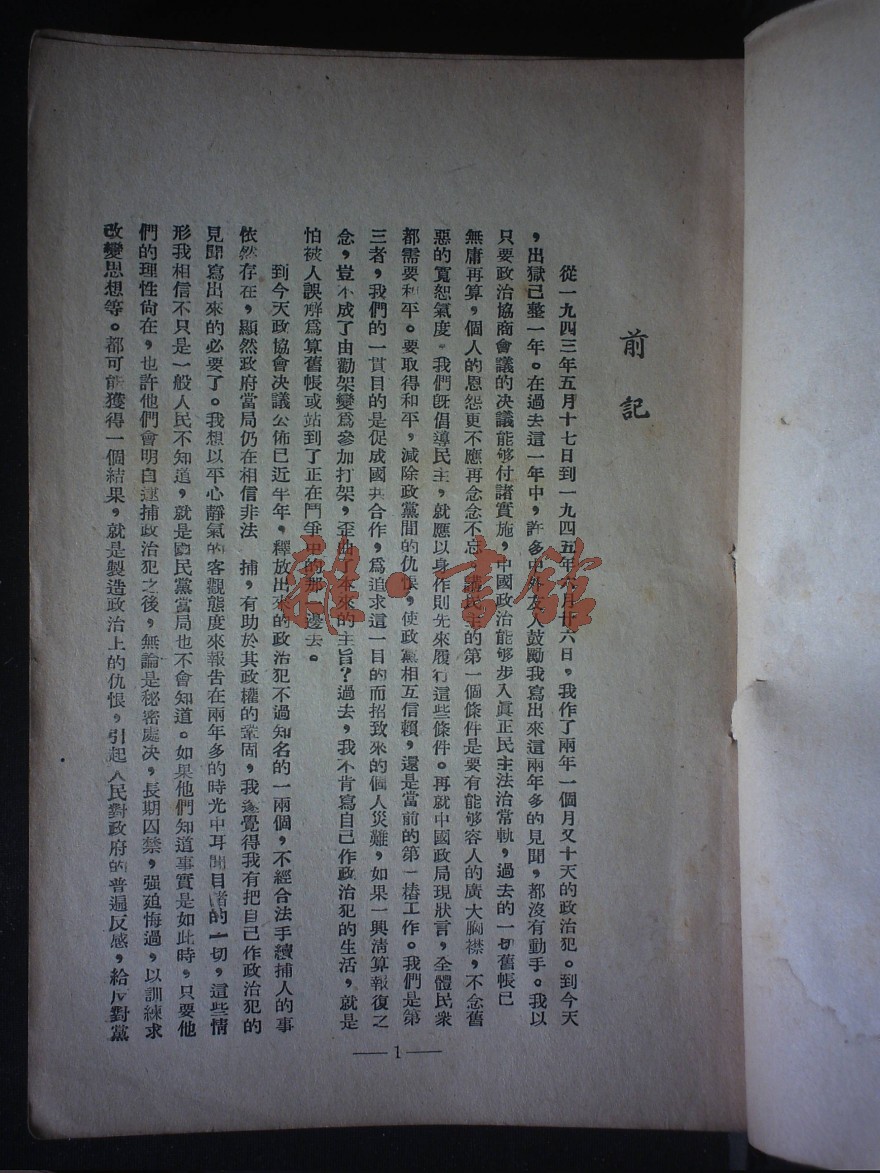 前記
從一九四三年五月十七日到一九四五年六月廿六日，我作了兩年一個月又十天的政治犯。到今天
，出獄已整一年。在過去這一年中，許多中外友人鼓勵我寫出來這兩年多的見聞，都沒有動手。我以
只要政治協商會議的決議能够付諸實施，中國政治能够步入眞正民主法治常軌，過去的一切舊帳已
無庸再算，個人的恩怨更不應再念念不忘，講民主的第一個條件是要有能够容人的廣大胸襟，不念舊
惡的寬恕氣度。我們旣倡導民主，就應以身作則先來履行這些條件。再就中國政局現狀言，全體民衆
都需要和平。要取得和平，減除政黨間的仇恨，使政黨相互信賴，還是當前的第一樁工作。我們是第
三者，我們的一貫目的是促成國共合作，爲追求這一目的而招致來的個人災難，如果一興淸算報復之
念，豈不成了由勸架變爲參加打架，歪曲了本來的主旨？過去，我不肯寫自己作政治犯的生活，就是
怕被人誤解爲算舊帳或站到了正在鬥爭中的那一邊去。
到今天政協會决議公佈已近半年，釋放出來的政治犯不過知名的一兩個，不經合法手續捕人的事
依然存在，顯然政府當局仍在相信非法 捕，有助於其政權的鞏固，我遂覺得我有把自己作政治犯的
見聞寫出來的必要了。我想以平心靜氣的客觀態度來報告在兩年多的時光中耳聞目睹的一切，這些情
形我相信不只是一般人民不知道，就是國民黨當局也不會知道。如果他們知道事實是如此時，只要他
們的理性尙在，也許他們會明白逮捕政治犯之後，無論是秘密處决，長期囚禁，强廹悔過，以訓練求
改變思想等。都可能獲得一個結果，就是製造政治上的仇恨，引起人民對政府的普遍反感，給反對黨
—1—
雜·書館